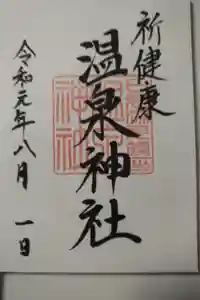 祈健康
温泉神社
令和元年八月一日